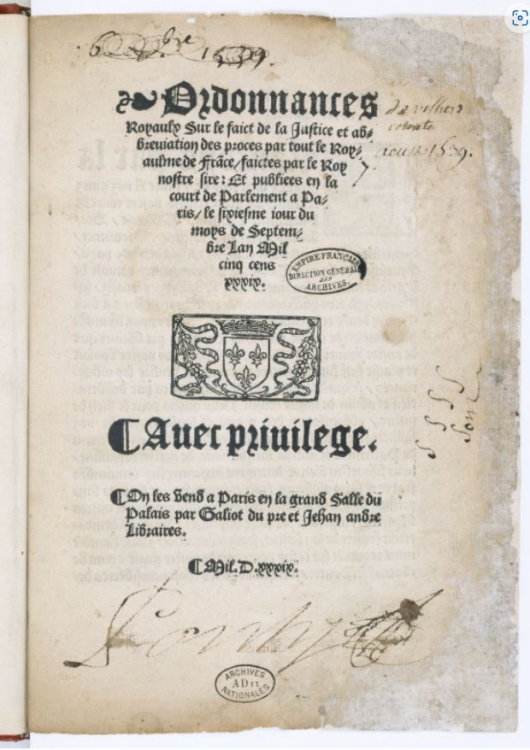 1539.
Ordonnances
Royaulx Sur le faict de la Justice et ab-
breviation des proces par tout le Roy-
aulme de frãce/faictes par le Roy
nostre sire: Et publiees en la
court de Parlement a Pa-
ris/ le sixiesme iour du
moys de Septem-
bre Lan Mil
cinq cens
xxxix.
de villers
aoust 1539.
EMPIRE FRANÇAIS
DIRECTION GÉNÉRALE
DES
ARCHIVES.
¶ Avec privilege.
¶ On les vend a Paris en la grand Salle du
Palais par Galiot du pre et Jehan andre
Libraires.
¶ Mil. D. xxxix.
ARCHIVES
AD II
NATIONALES